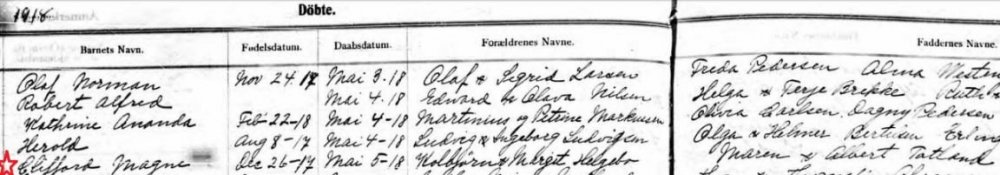 1918
Döbte.
Barnets Navn. Fodelsdatum. Daabsdatum. Forældrenes Navne. Faddernes Navne.
Olaf Norman Nov 24.17 Mai 3-18 Olaf & Sigrid Larsen Freda Pedersen Alma
Robert Alfred Mai 4-18 Edward & Olava Nilsen Helga & Terje Brekke Ruth
Kathrine Ananda Feb 22-18 Mai 4-18 Martinius og Petrine Markussen Olivia Carlsen, Dagny Pedersen
Herold Aug 8-17 Mai 4-18 Ludvig & Ingeborg Ludvigsen Olga & Helmer Bertisen
Clifford Magne Dec 26-17 Mai 5-18 Kolbjörn & Marget Helgebo Maren & Albert Totland